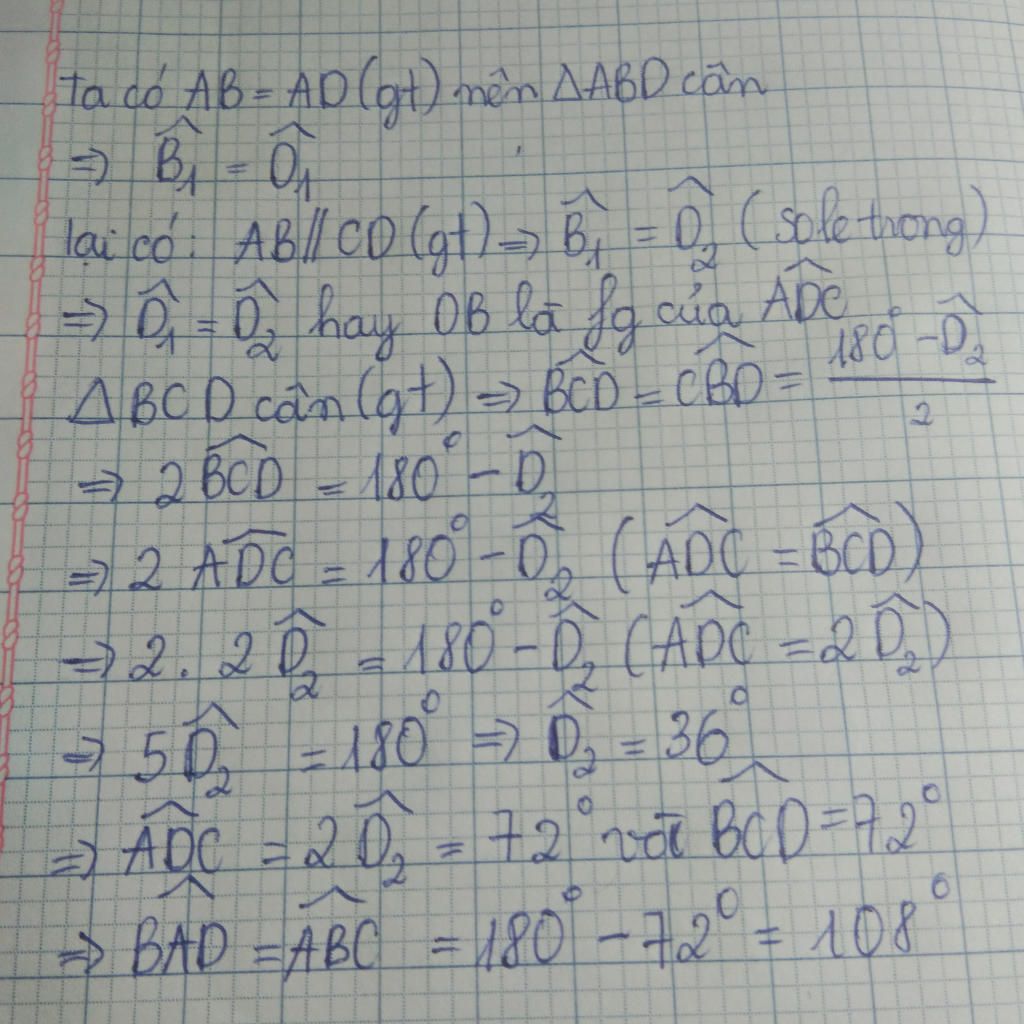 Ta có AB = AD (gt) nên ΔABD cân
⇒ B̂₁ = D̂₁
lại có: AB // CD (gt) ⇒ B̂₁ = D̂₂ (sole trong)
⇒ D̂₁ = D̂₂ hay DB là fg của \widehat{ADC}
ΔBCD cân (gt) ⇒ \widehat{BCD} = \widehat{CBD} = \frac{180° - D̂₂}{2}
⇒ 2\widehat{BCD} = 180° - D̂₂
⇒ 2\widehat{ADC} = 180° - D̂₂ (\widehat{ADC} = \widehat{BCD})
⇒ 2 . 2D̂₂ = 180° - D̂₂ (\widehat{ADC} = 2D̂₂)
⇒ 5D̂₂ = 180° ⇒ D̂₂ = 36°
⇒ \widehat{ADC} = 2D̂₂ = 72° và \widehat{BCD} = 72°
⇒ \widehat{BAD} = \widehat{ABC} = 180° - 72° = 108°